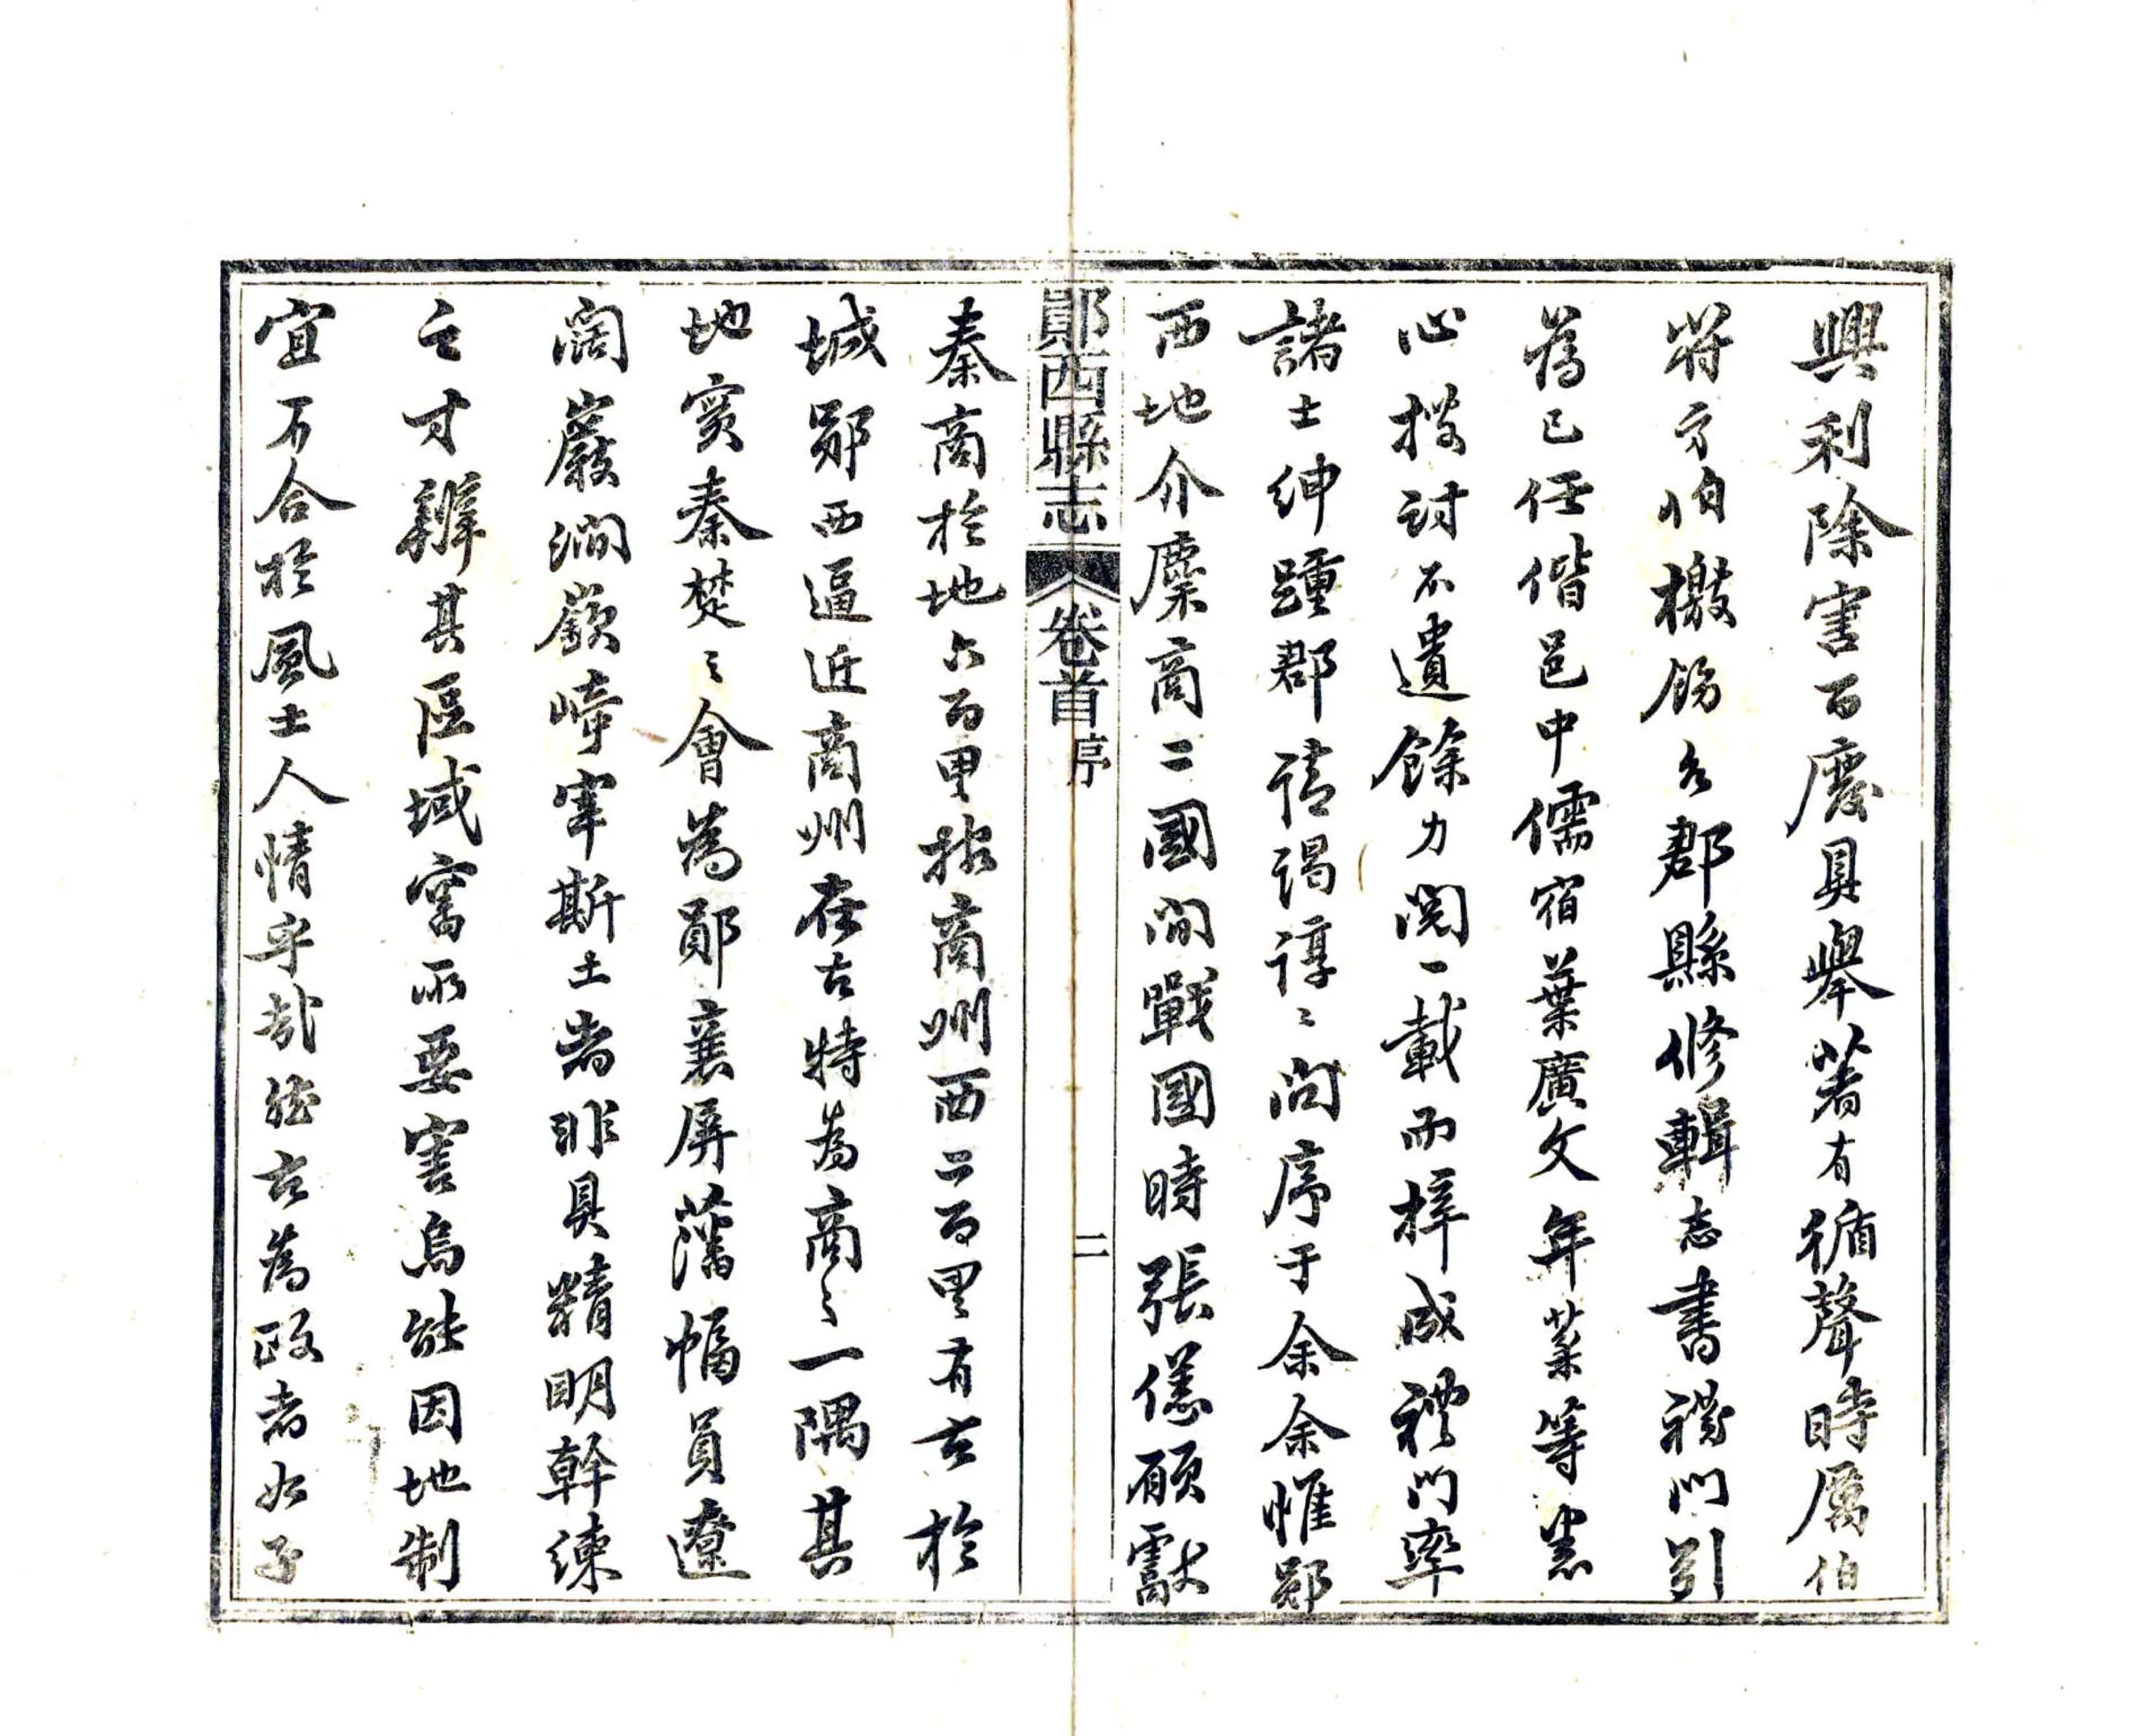 興利除害百廢具舉著有循聲時厲伯
將方伯檄飭各郡縣修輯志書禮門引
為已任偕邑中儒宿葉廣文年棻等悉
心搜討不遺餘力閱一載而梓成禮門率
諸士紳踵郡請謁諄〻問序于余余惟鄖
西地介麇商二國間戰國時張儀願獻
鄖西縣志
卷首
序
二
秦商於地六百里按商州西二百里有古於
城鄖西逼近商州在古特為商之一隅其
地實秦楚〻會為鄖襄屏藩幅員遼
闊巖澗嶔㟁宰斯土者非具精明幹練
之才辨其區域審所要害烏能因地制
宜而合於風土人情乎哉繼古為政者如子